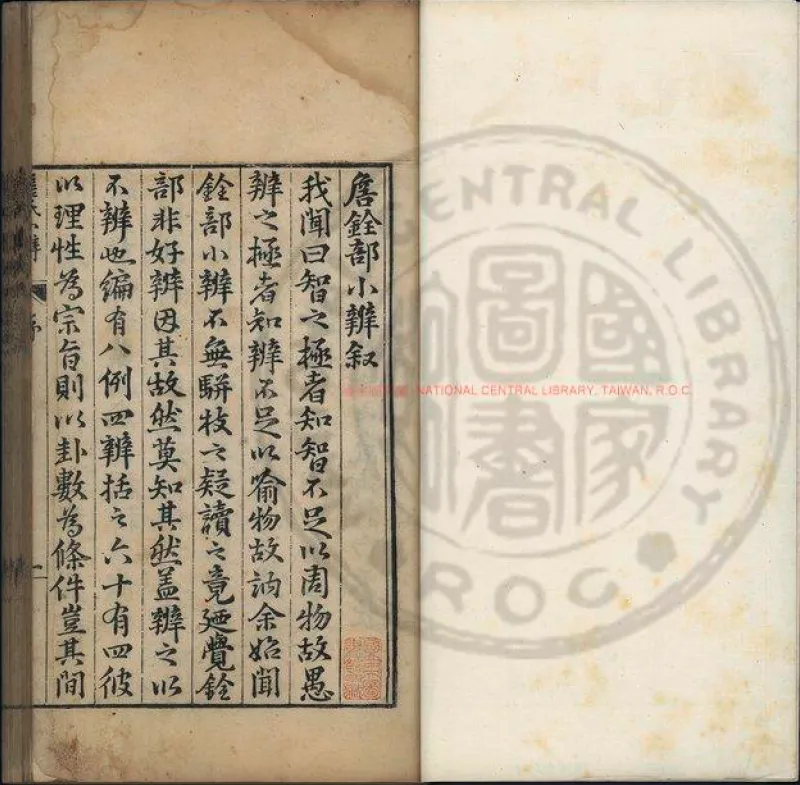 詹銓部小辨叙
我聞曰智之極者知智不足以周物故愚
辨之極者知辨不足以喻物故訥余始聞
銓部小辨不無駢枝之疑讀之竟廼覺銓
部非好辨因其故然莫知其然盖辨之以
不辨也編有八例四辨括之六十有四彼
以理性為宗旨則以卦數為條件豈其間
詹氏小辨
序
一
NATIONAL CENTRAL LIBRARY, TAIWAN, R.O.C.
CENTRAL LIBRARY
R.O.C.
國家圖書